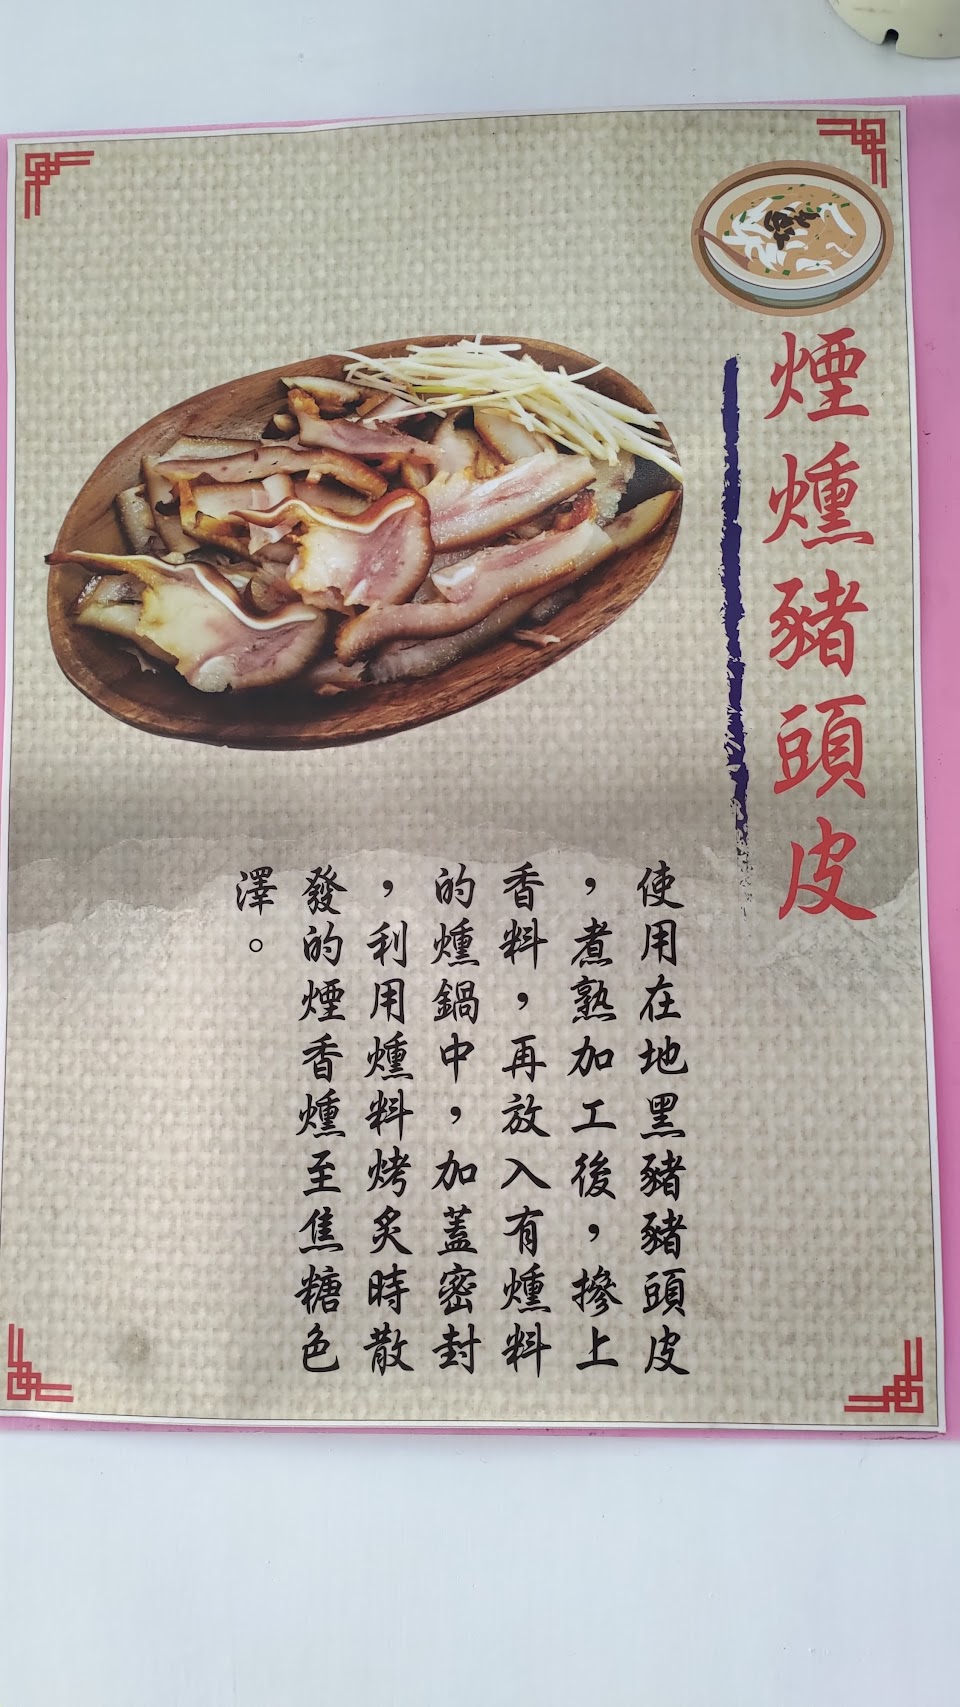 煙燻豬頭皮
使用在地黑豬豬頭皮
，煮熟加工後，摻上
香料，再放入有燻料
的燻鍋中，加蓋密封
，利用燻料烤炙時散
發的煙香燻至焦糖色
澤。